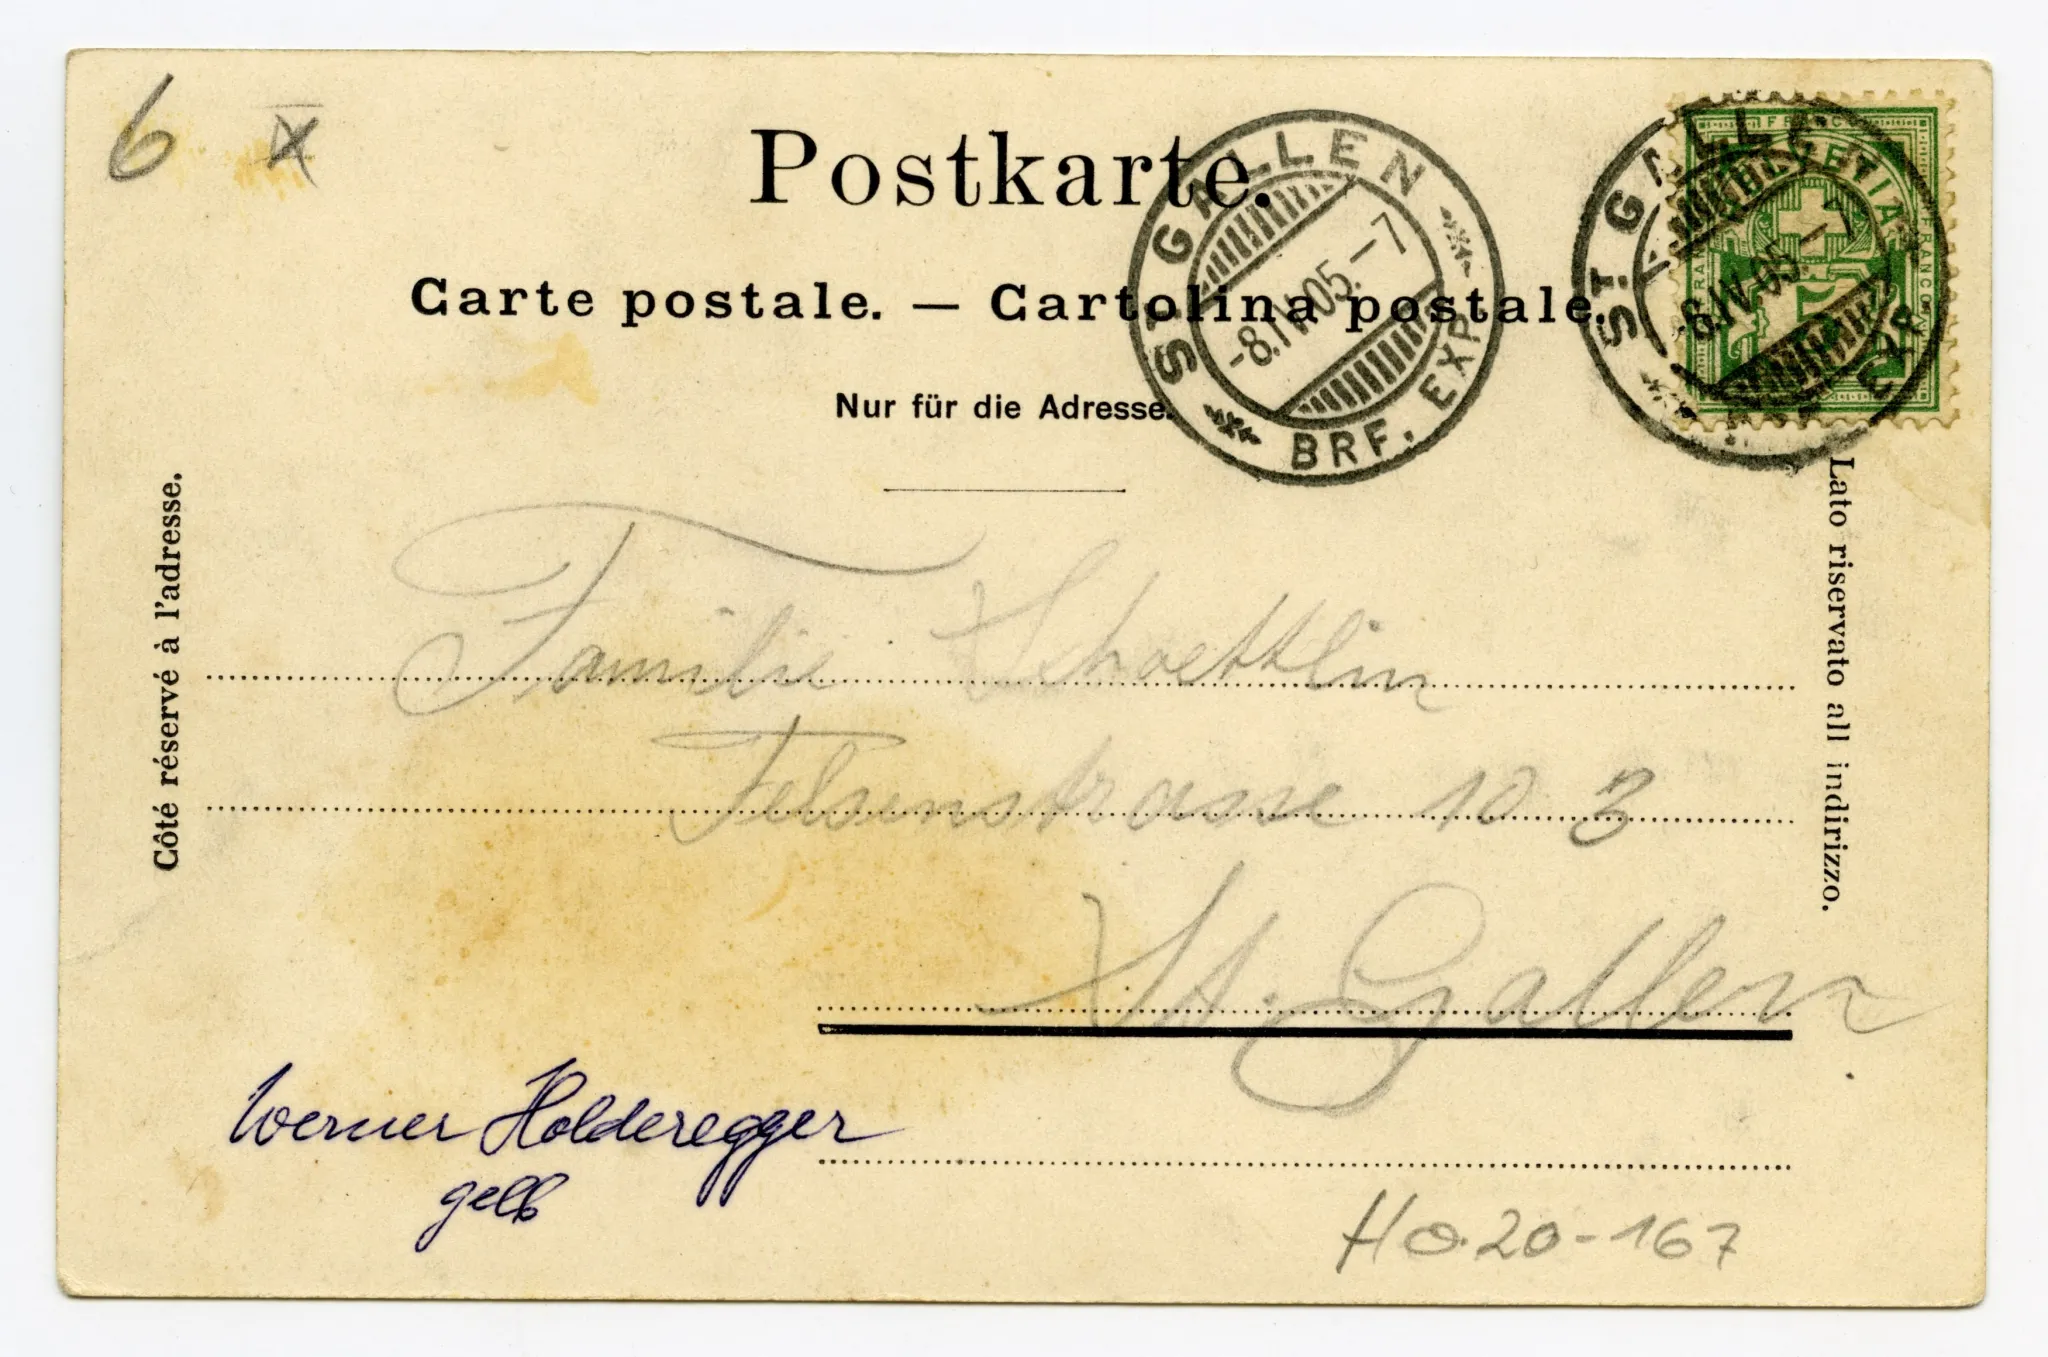 6 X
Postkarte.
Carte postale. — Cartolina postale.
Nur für die Adresse.
ST. GALLEN
-8.IV.05.-7
BRF. EXP.
ST. GALLEN
-8.IV.05.-7
BRF. EXP.
FRANCO
HELVETIA
FRANCO
FRANCO
5
Côté réservé à l'adresse.
Lato riservato all indirizzo.
Familie Schoettlin
Felsenstrasse 10 3
St. Gallen
Werner Holderegger
gelb
HO.20-167